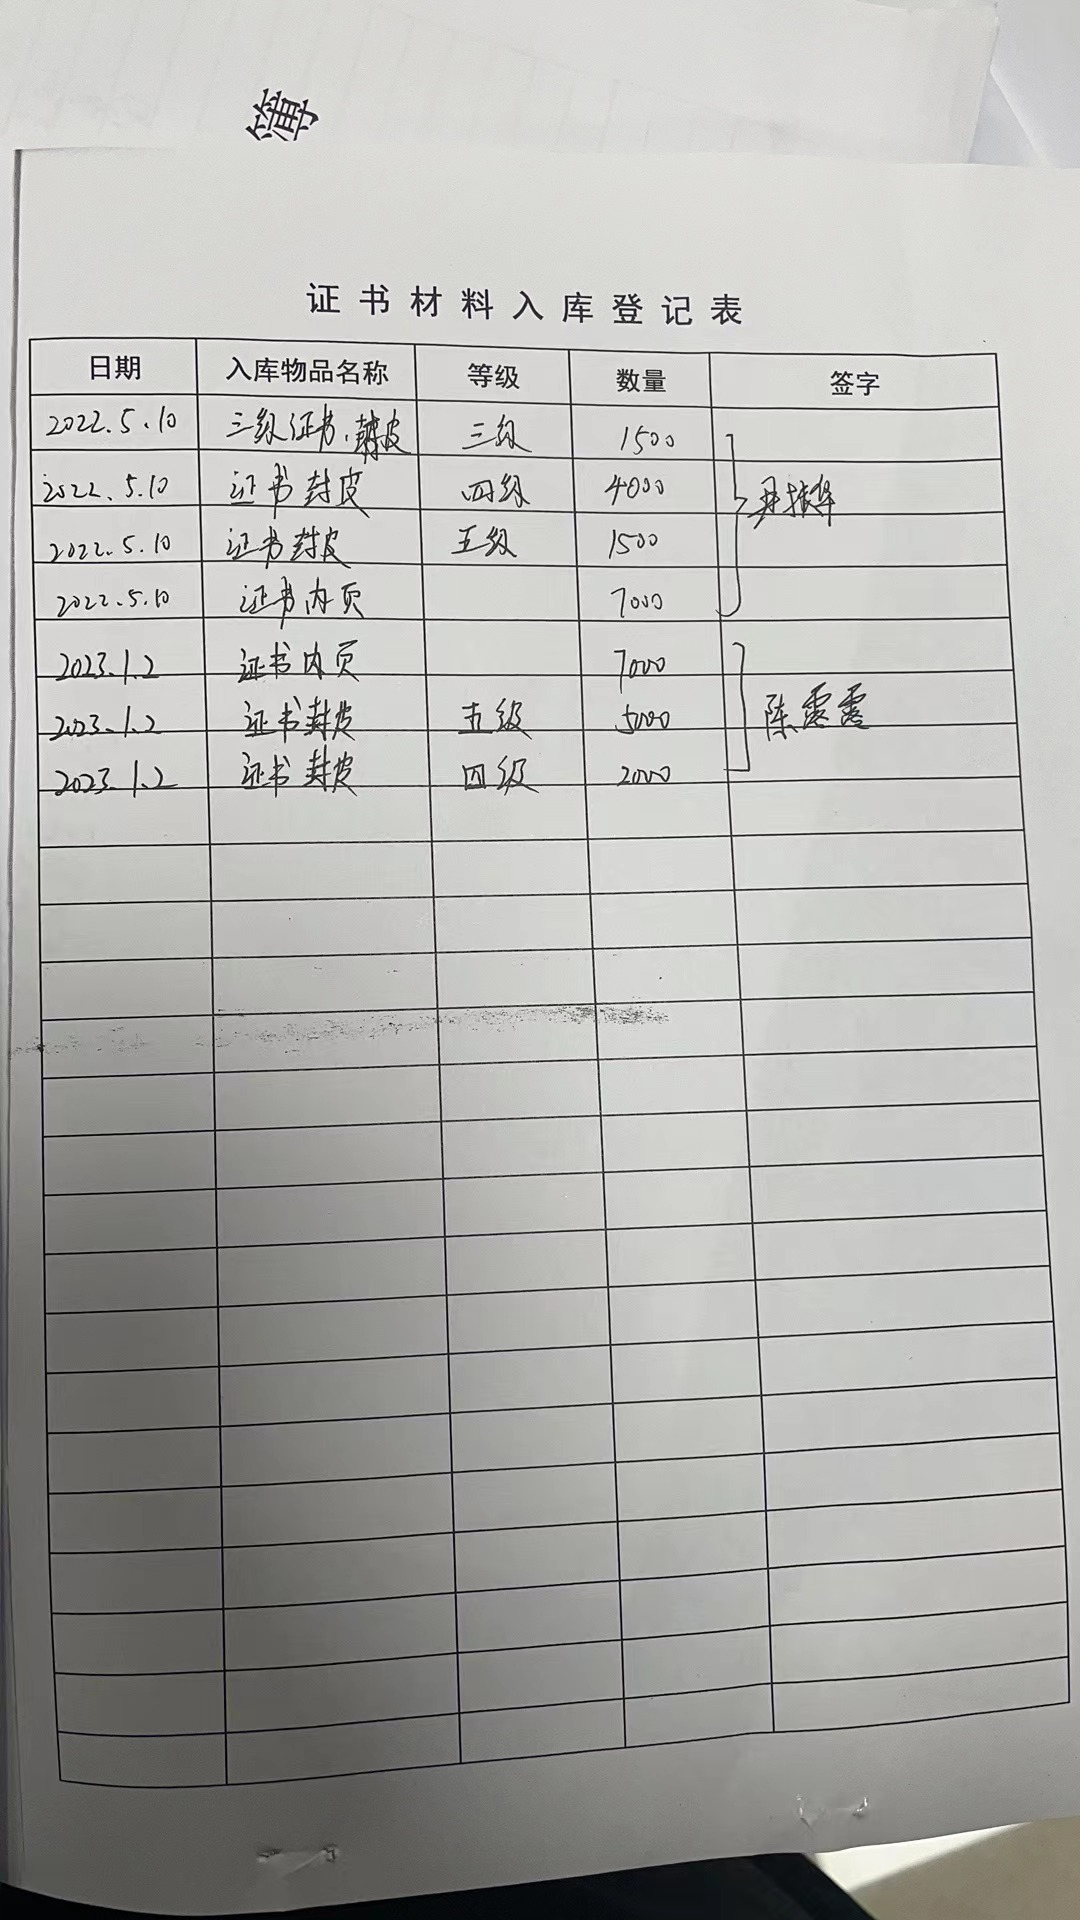 簿
证书材料入库登记表
日期 入库物品名称 等级 数量 签字
2022.5.10 三级证书、封皮 三级 1500
2022.5.10 证书封皮 四级 4000
2022.5.10 证书封皮 五级 1500
2022.5.10 证书内页 7000
2023.1.2 证书内页 7000
2023.1.2 证书封皮 五级 5000 陈露露
2023.1.2 证书封皮 四级 2000